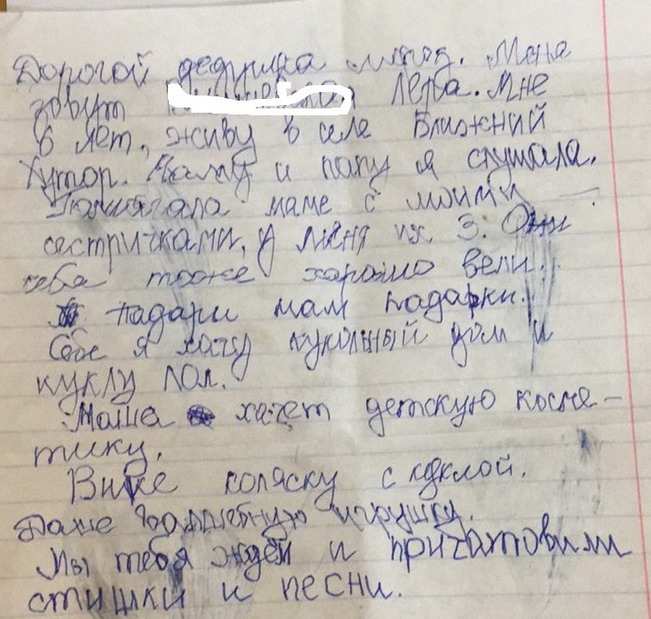 Дорогой дедушка мароз. Меня
зовут Лера. Мне
6 лет, живу в селе Ближний
Хутор. Маму и папу я слушала.
Помагала маме с моими
сестричками, у меня их 3. Они
себа тоже харошо вели.
падари нам падарки.
Себе я хачу кукольный дом и
куклу лол.
Маша хачет детскую косме-
тику.
Вике коляску с куклой.
Даше волшебную игрушку.
Мы тебя ждём и пригатовили
стишки и песни.